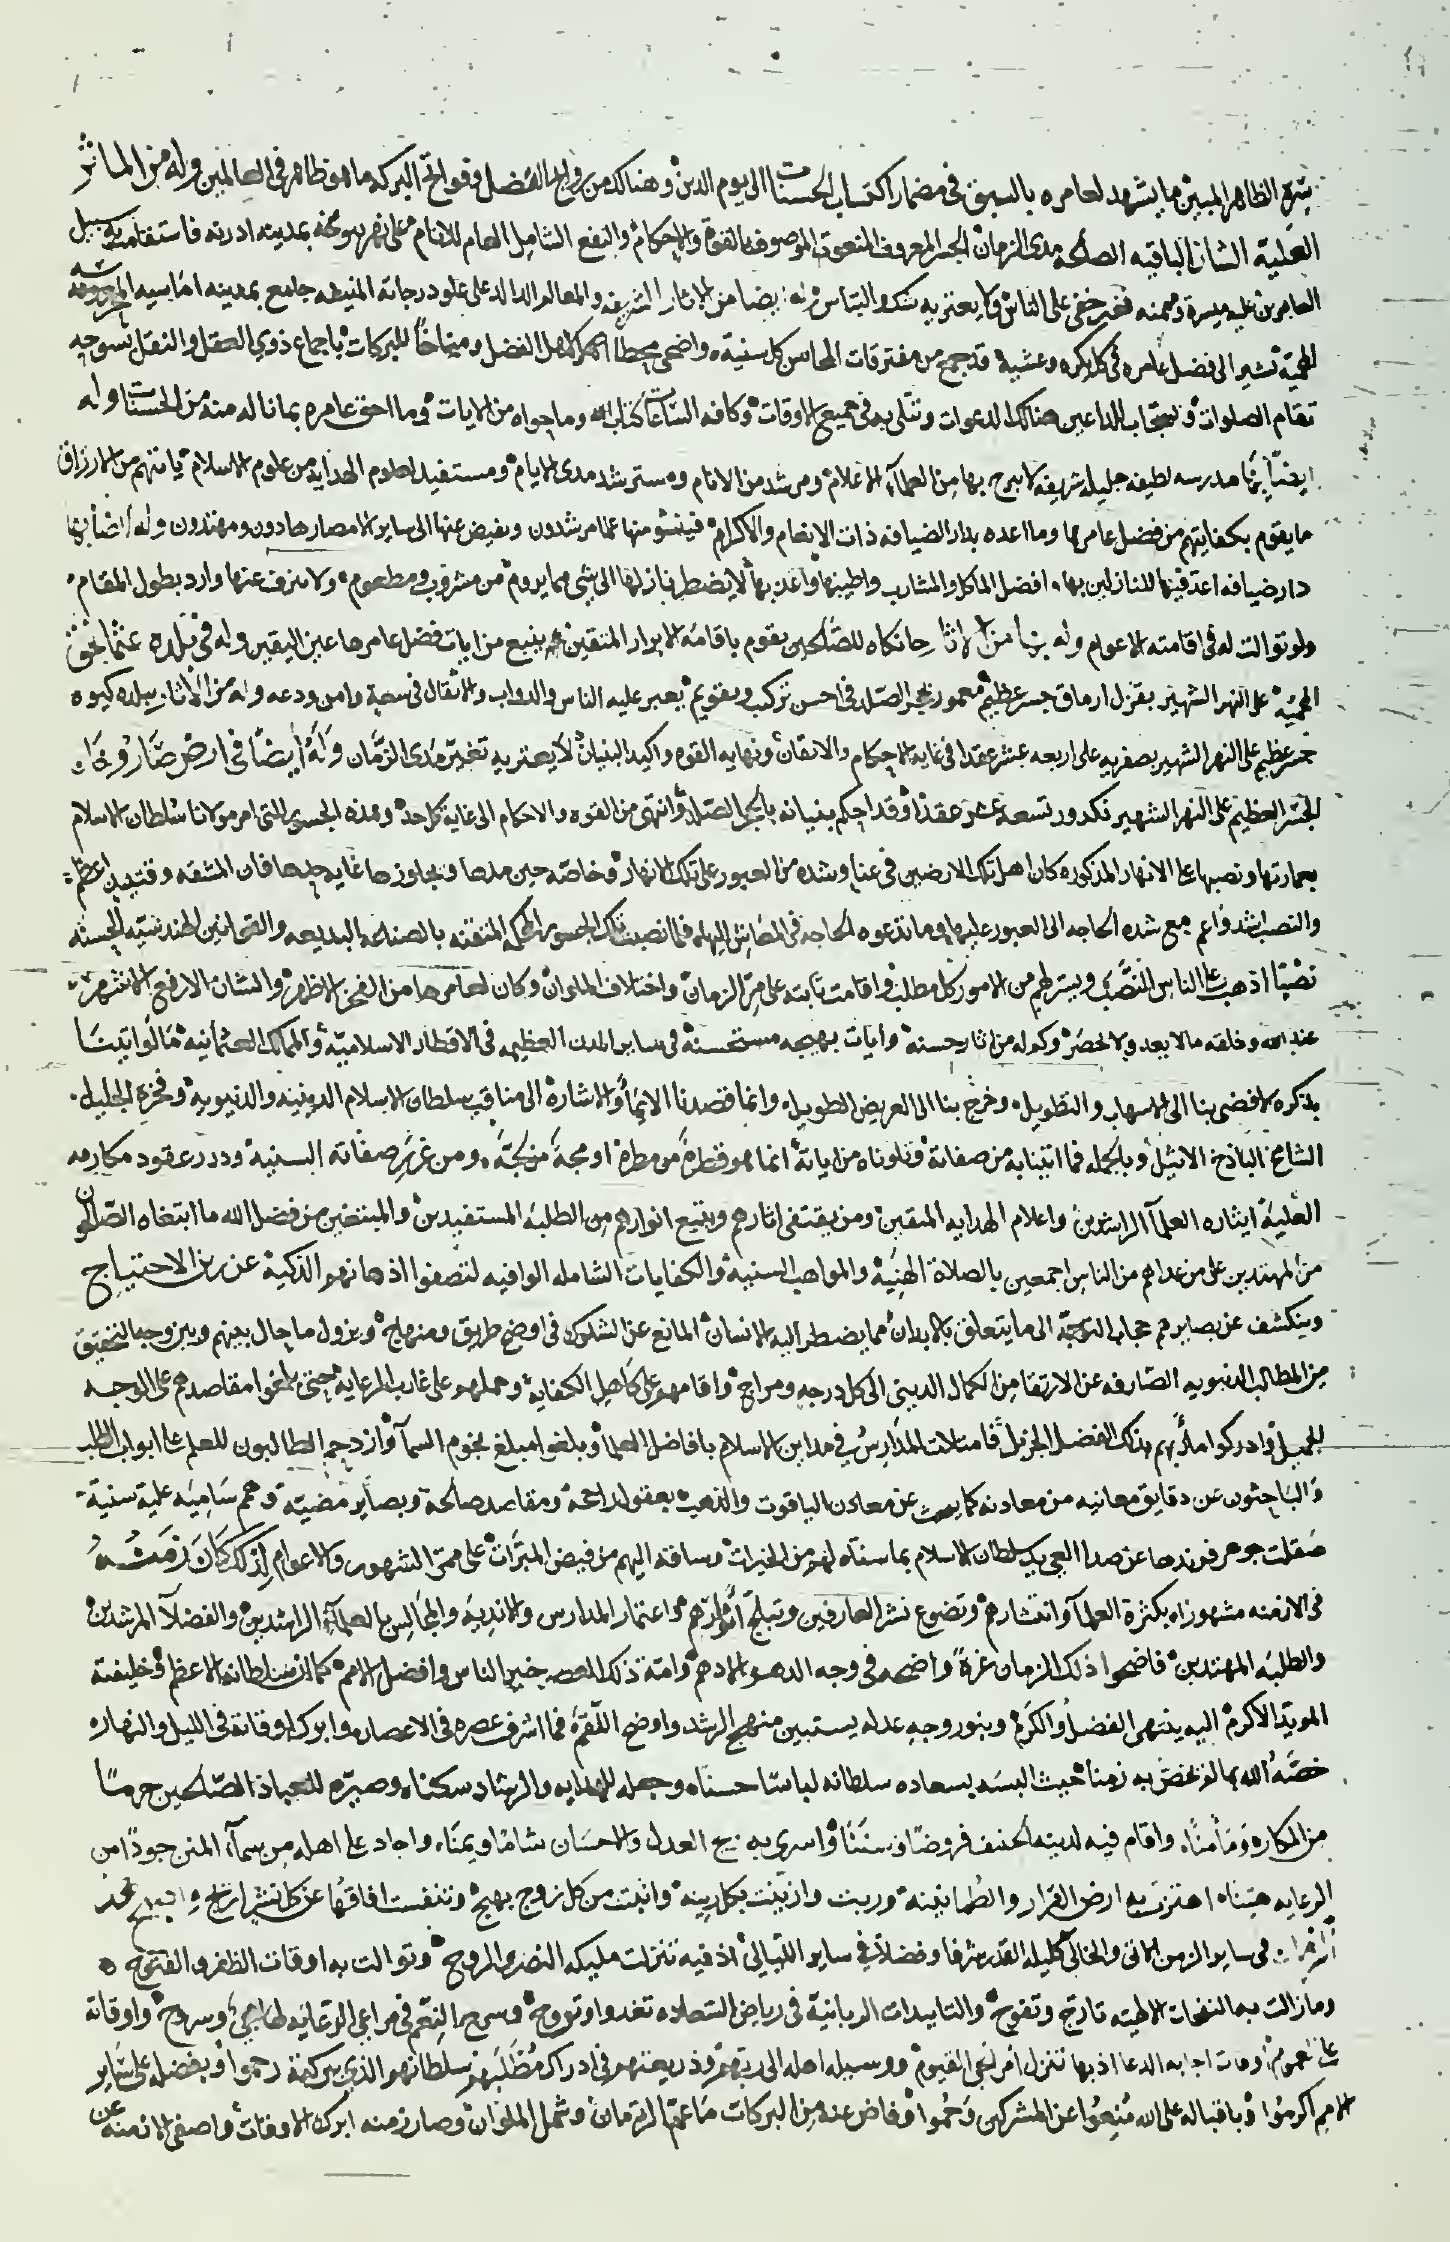 الظاهر المبين ما يشهد لعامره بالسبق في مضمار اكتساب الحسنات الى يوم الدين وهنالك من روايح الفضل وفوايح البركه ما هو ظاهر في العالمين وله من الماثر
العلية الشان الباقيه الصالحة مدى الزمان الجسر المعروف المنعوت الموصوف بالقوة والاحكام والنفع الشامل العام للانام على نهر بمدينه ادرنه فاستقامت به سبيل
العابرين عليه ميسرة وميمنه فغير خفي على الناس ولا يعتريه شك والتباس وله ايضا من الاثار الشريفه والمعالم الداله على علو درجاته المنيفه جامع بمدينه اماسيه المحروسه
المحمية تشير الى فضل عامره في كل بكره وعشية قد جمع من مفترقات المحاسن كل سنية واضحى محطا لاهل الفضل ومناخا للبركات باجماع ذوي العقل والنقل
تقام الصلوات وتستجاب للداعين هنالك الدعوات وتتلى به في جميع الاوقات وكافه الساعات كتاب الله وما حواه من الايات وما احق عامره بما ناله منه من الحسنات وله
ايضا بها مدرسه لطيفه جليله شريفه لا يبرح بها من العلماء الاعلام ومرشد من الانام ومسترشد مدى الايام ومستفيد لعلوم الهدايه من علوم الاسلام ياتيهم من الارزاق
ما يقوم بكفايتهم من فضل عامرها وما اعده بدار الضيافه ذات الانعام والاكرام فينشو منها علما مرشدون ويفيض عنها الى ساير الامصار هادون ومهتدون وله ايضا بها
دار ضيافه اعد فيها للنازلين بها افضل الماكل والمشارب واطيبها واعذبها لا يضطر نازلها الى شي مما يروم من مشروب ومطعوم ولا ينزف عنها وارد بطول المقام
ولو توالت له في اقامته الاعوام وله بها من الاثار خانكاه للصالحين يقوم باقامه الابرار المتقين ينبع من ايات فضل عامرها عين اليقين وله في بلده عثمانجق
المحمية على النهر الشهير بقزل ارماق جسر عظيم معمور بحجر الصلد في احسن تركيب وتقويم يعبر عليه الناس والدواب والاثقال في سعة وامن ودعه وله من الاثار ببلده كيوه
جسر عظيم على النهر الشهير بصقريه على اربعه عشر عقدا في غايه الاحكام والاتقان ونهايه القوه واكيد البنيان لا يعتريه تغير مدى الزمان وله ايضا في ارض صاروخان
الجسر العظيم على النهر الشهير بكدور تسعه عشر عقدا وقد احكم بنيانه بالحجر الصلد وانتهى من القوه والاحكام الى غاية كل حد وهذه الجسور التي امر مولانا سلطان الاسلام
بعمارتها ونصبها على الانهار المذكوره كان اهل تلك الارضين في عنا وشده من العبور على تلك الانهار وخاصه حين مدها وتجاوزها غايه حدها فان المشقه وقتيذ اعظم
والنصب اشد واعم مع شده الحاجه الى العبور عليها وما تدعوه الحاجه في المعاش اليها فلما نصبت تلك الجسور المحكمه المتقنه بالصناعه البديعه والقوانين الهندسيه الحسنه
نصبا اذهب عن الناس النصب ويسر لهم من الامور كل مطلب واقامت ثابته على مر الزمان واختلاف الملوان وكان لعامرها من الفخر الاظهر والشان الارفع الاشهر
عند الله وخلقه ما لا يعد ولا يحصر وكم له من اثار حسنه وايات بهيجه مستحسنة في ساير المدن العظيمه في الاقطار الاسلاميه والممالك العثمانيه ما لو اتينا
بذكره لافضى بنا الى الاسهاب والتطويل وخرج بنا الى العريض الطويل وانما قصدنا الايماء والاشارة الى مناقب سلطان الاسلام الدينيه والدنيويه وفخره الجليل
الشامخ الباذخ الاثيل وبالجمله فما اتينا به من صفاته وتلوناه من اياته انما هو قطرة من مطره او مجة من لجة ومن غرر صفاته السنيه ودرر عقود مكارمه
العلية ايثاره العلما الراشدين واعلام الهدايه المتقين ومن يقتفي اثارهم ويتبع انوارهم من الطلبه المستفيدين والمبتغين من فضل الله ما ابتغاه الصالحون
من المهتدين على من عداهم من الناس اجمعين بالصلاة الهنية والمواهب السنية والكفايات الشامله الوافيه لتصفوا اذهانهم الذكية عن رين الاحتياج
وينكشف عن بصايرهم حجاب التوجه الى ما يتعلق بالابدان مما يضطر اليه الانسان المانع عن السلوك في اوضح طريق ومنهاج ويزول ما حال بينهم وبين وجه التحقيق
من المطالب الدنيويه الصارفه عن الارتقا من الكمال الديني الى كل درجه ومراج واقامهم على كاهل الكفاية وحملهم على غارب الرعايه حتى بلغوا مقاصدهم على الوجه
الجميل وادركوا مآربهم بذلك الفضل الجزيل فامتلات المدارس في مداين الاسلام بافاضل العلما وبلغوا مبلغ نجوم السما وازدحم الطالبون للعلم على ابواب الطلب
والباحثون عن دقايق معانيه من معادنه كما يبحث عن معادن الياقوت والذهب بعقول راجحه ومقاصد صالحة وبصاير مضيئة وهمم ساميه علية سنية
صقلت جوهر فرندها عن صدا العي يد سلطان الاسلام بما سناه لهم من الخيرات وساقه اليهم من فيض المبرات على ممر الشهور والاعوام لذلك كان زمنه
في الازمنه مشهورا بكثرة العلما وانتشارهم وتضوع نشر العارفين وتبلج انوارهم واعتمار المدارس والاندية والمجالس بالعلماء الراشدين والفضلاء المرشدين
والطلبه المهتدين فاضحوا ذلك الزمان غرة واضحه في وجه الدهر الادهم وامة ذلك العصر خير الناس وافضل الامم كما ان سلطانه الاعظم وخليفته
المويد الاكرم اليه ينتهى الفضل والكرم وبنور وجه عدله يستبين منهج الرشد واوضح اللقم فما اشرف عصره في الاعصار وابرك اوقاته في الليل والنهار
خصه الله بما لم يخص به زمنا حيث البسه بسعاده سلطانه لباسا حسنا وجعله للهدايه والرشاد سكنا وصيره للعياذ الصالحين حرما
من المكاره ومامنا واقام فيه لدينه الحنيف فروضا وسننا واسرى به ريح العدل والاحسان شاما ويمنا واجاد على اهله من سماء المنن جودا من
الرعايه هتنا اهتزت به ارض القرار والطمانينه وربت وازينت بكل زينه وانبتت من كل زوج بهيج وتنفست افاقها عن كل نشر اريج
في ساير الزمن الاتي والخالي كليله القدر شرفا وفضلا في ساير الليالي اذ فيه تنزلت مليكه النصر والروح وتوالت به اوقات الظفر والفتوح
وما زالت به النفحات الالهيه تارج وتفوح والتاييدات الربانية في رياض السعاده تغدوا وتروح وسرح النعم في مراعي الرعايه وسروح واوقاته
اوقات اجابه الدعا اذ بها تنزل امر الحي القيوم ووسيله اهله الى ربهم وذريعتهم في ادراك مطلبهم سلطانهم الذي ببركته رحموا وبفضله على ساير
الامم اكرموا وباقباله على الله منعوا عن المشركين وحموا وفاض عنه من البركات ما عم الزمان وشمل الملوان وصار زمنه ابرك الاوقات واصفى الازمنه عن